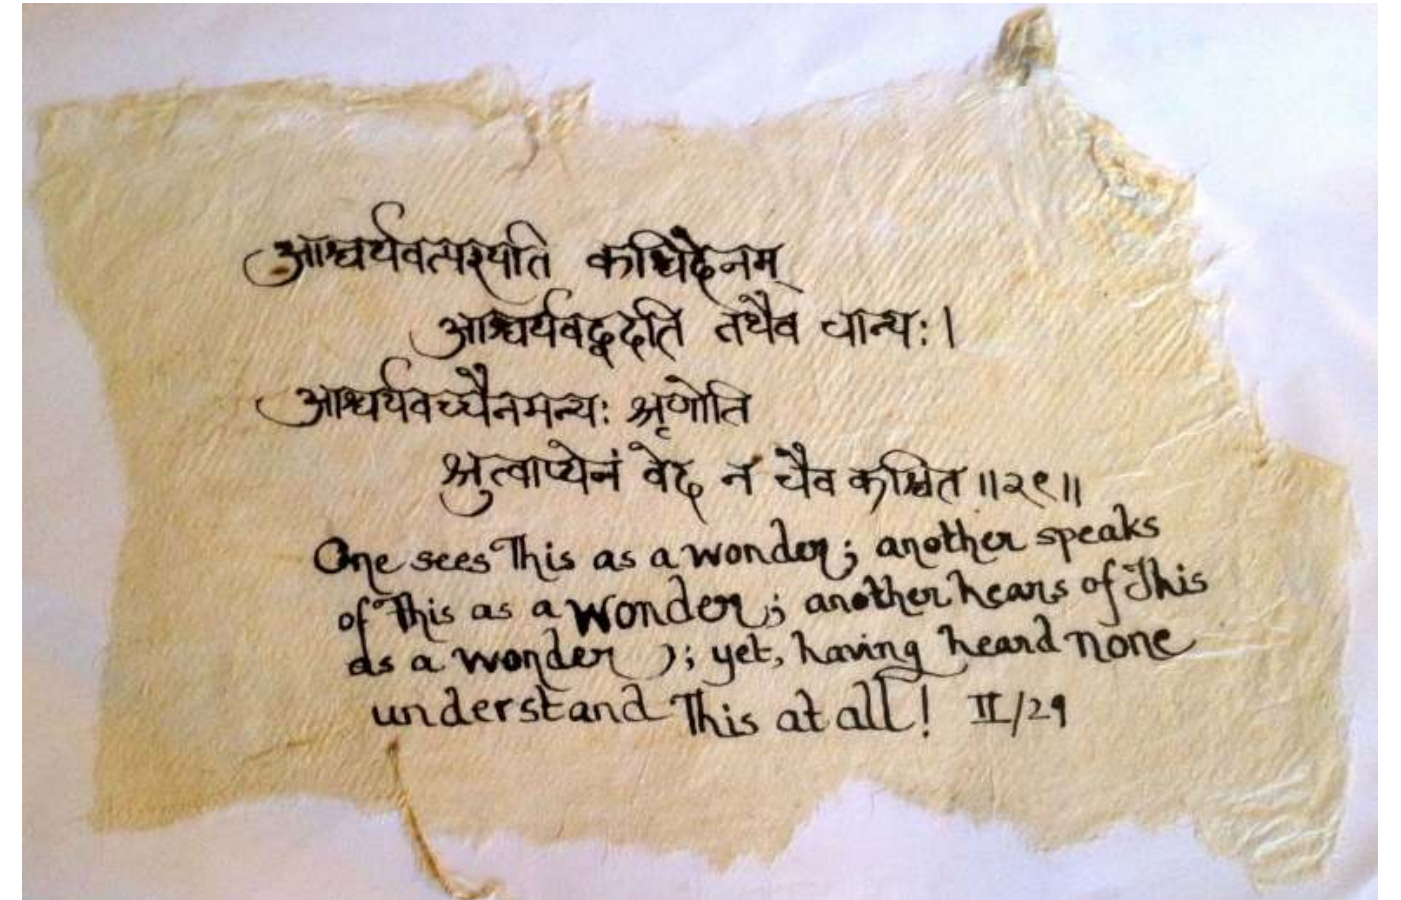 आश्चर्यवत्पश्यति कश्चिदेनम्
आश्चर्यवद्वदति तथैव चान्यः।
आश्चर्यवच्चैनमन्यः श्रृणोति
श्रुत्वाप्येनं वेद न चैव कश्चित ॥२९॥
One sees This as a wonder; another speaks
of This as a wonder; another hears of This
as a wonder ); yet, having heard none
understand This at all! II/29